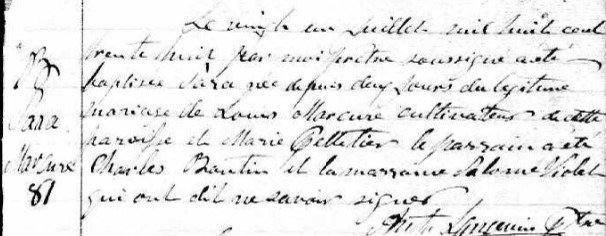 Le vingt un Juillet mil huit cent
trente huit par moi prêtre soussigné a été
B
baptisée Sara née depuis deux jours du légitime
mariage de Louis Marcure cultivateur de cette
Sara
paroisse et Marie Pelletier le parrain a été
Marcure
Charles Bantin et la marraine Salomé Violet
81
qui ont dit ne savoir signer
Ant. Langevin Ptre